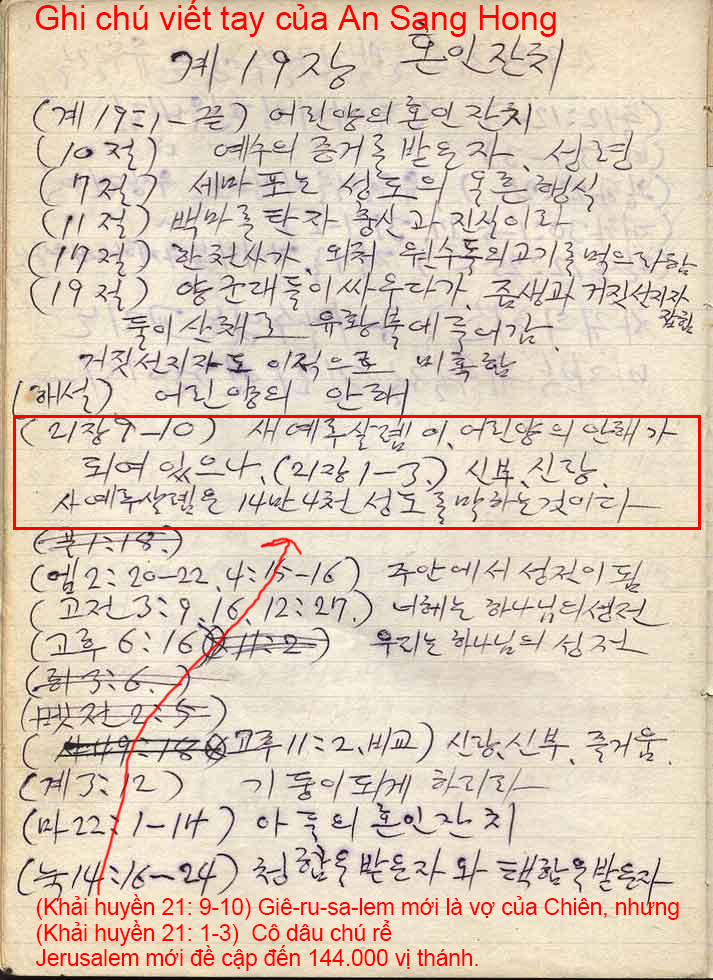 Ghi chú viết tay của An Sang Hong
계 19장 혼인잔치
(계 19:1-끝) 어린양의 혼인잔치
(10절) 예수의 증거를 받은자,
(7절) 세마포는 성도의 옳은행실
(11절) 백마를 탄자 충신과 진실이라
(17절) 한천사가, 외쳐 원수들의고기를 먹으라함
(19절) 양군대들이싸우다가, 즘생과 거짓선지자
잡힘
둘이 산채로 유황불에 들어감.
거짓선지자도 이적으로 미혹함
(해설) 어린양의 안해
(21장9-10) 새예루살렘이, 어린양의안해가
되여있으나, (21장1-3.) 신부,신랑,
사예루살렘은 14만4천 성도를말하는것이다
(골1:18.)
(엡2:20-22, 4:15-16) 주안에서 성전이 됨
(고전 3:9, 16, 12:27.) 너헤는 하나님의성전
(고후 6:16) (11:2) 우리는하나님의 성전
(히3:6.)
(벳전2:5)
( 49:18 고후11:2, 비교) 신랑,신부, 즐거움.
(계3:12) 기둥이되게 하리라
(마22:1-14) 아들의혼인잔치
(눅14:16-24) 청함을받은자와 택함을받은자
(Khải huyền 21: 9-10) Giê-ru-sa-lem mới là vợ của Chiên, nhưng
(Khải huyền 21: 1-3) Cô dâu chú rể
Jerusalem mới đề cập đến 144.000 vị thánh.